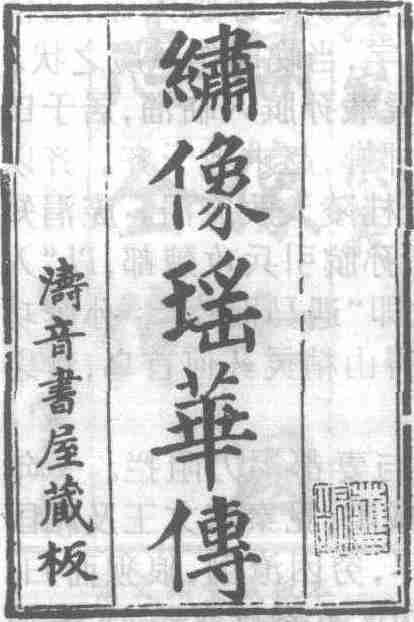 繡像瑶華傳
濤音書屋蔵板